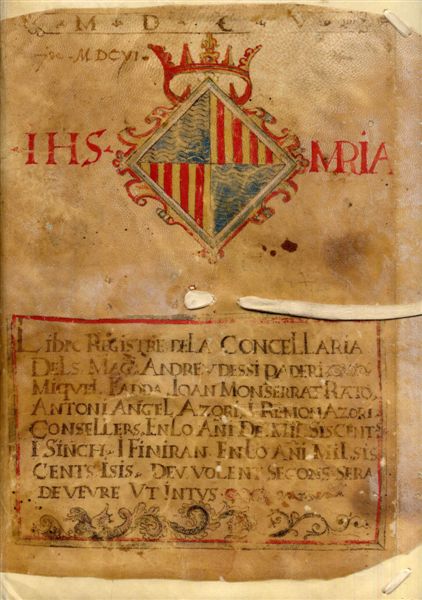 M D C V
MDCVI
IHS MRIA
LIBRE REGISTRE DE LA CONCELLARIA
DELS MAG. ANDREU DESSI PADERI
MIQUEL FADDA, JOAN MONSERRAT RAIO,
ANTONI ANGEL AZORI, I REMON AZORI
CONSELLERS, EN LO ANI DE MIL SISCENTS
I SINCH. I FINIRAN. EN LO ANI MIL SIS
CENTS I SIS. DEU VOLENT SEGONS SERA
DE VEURE UT INTUS